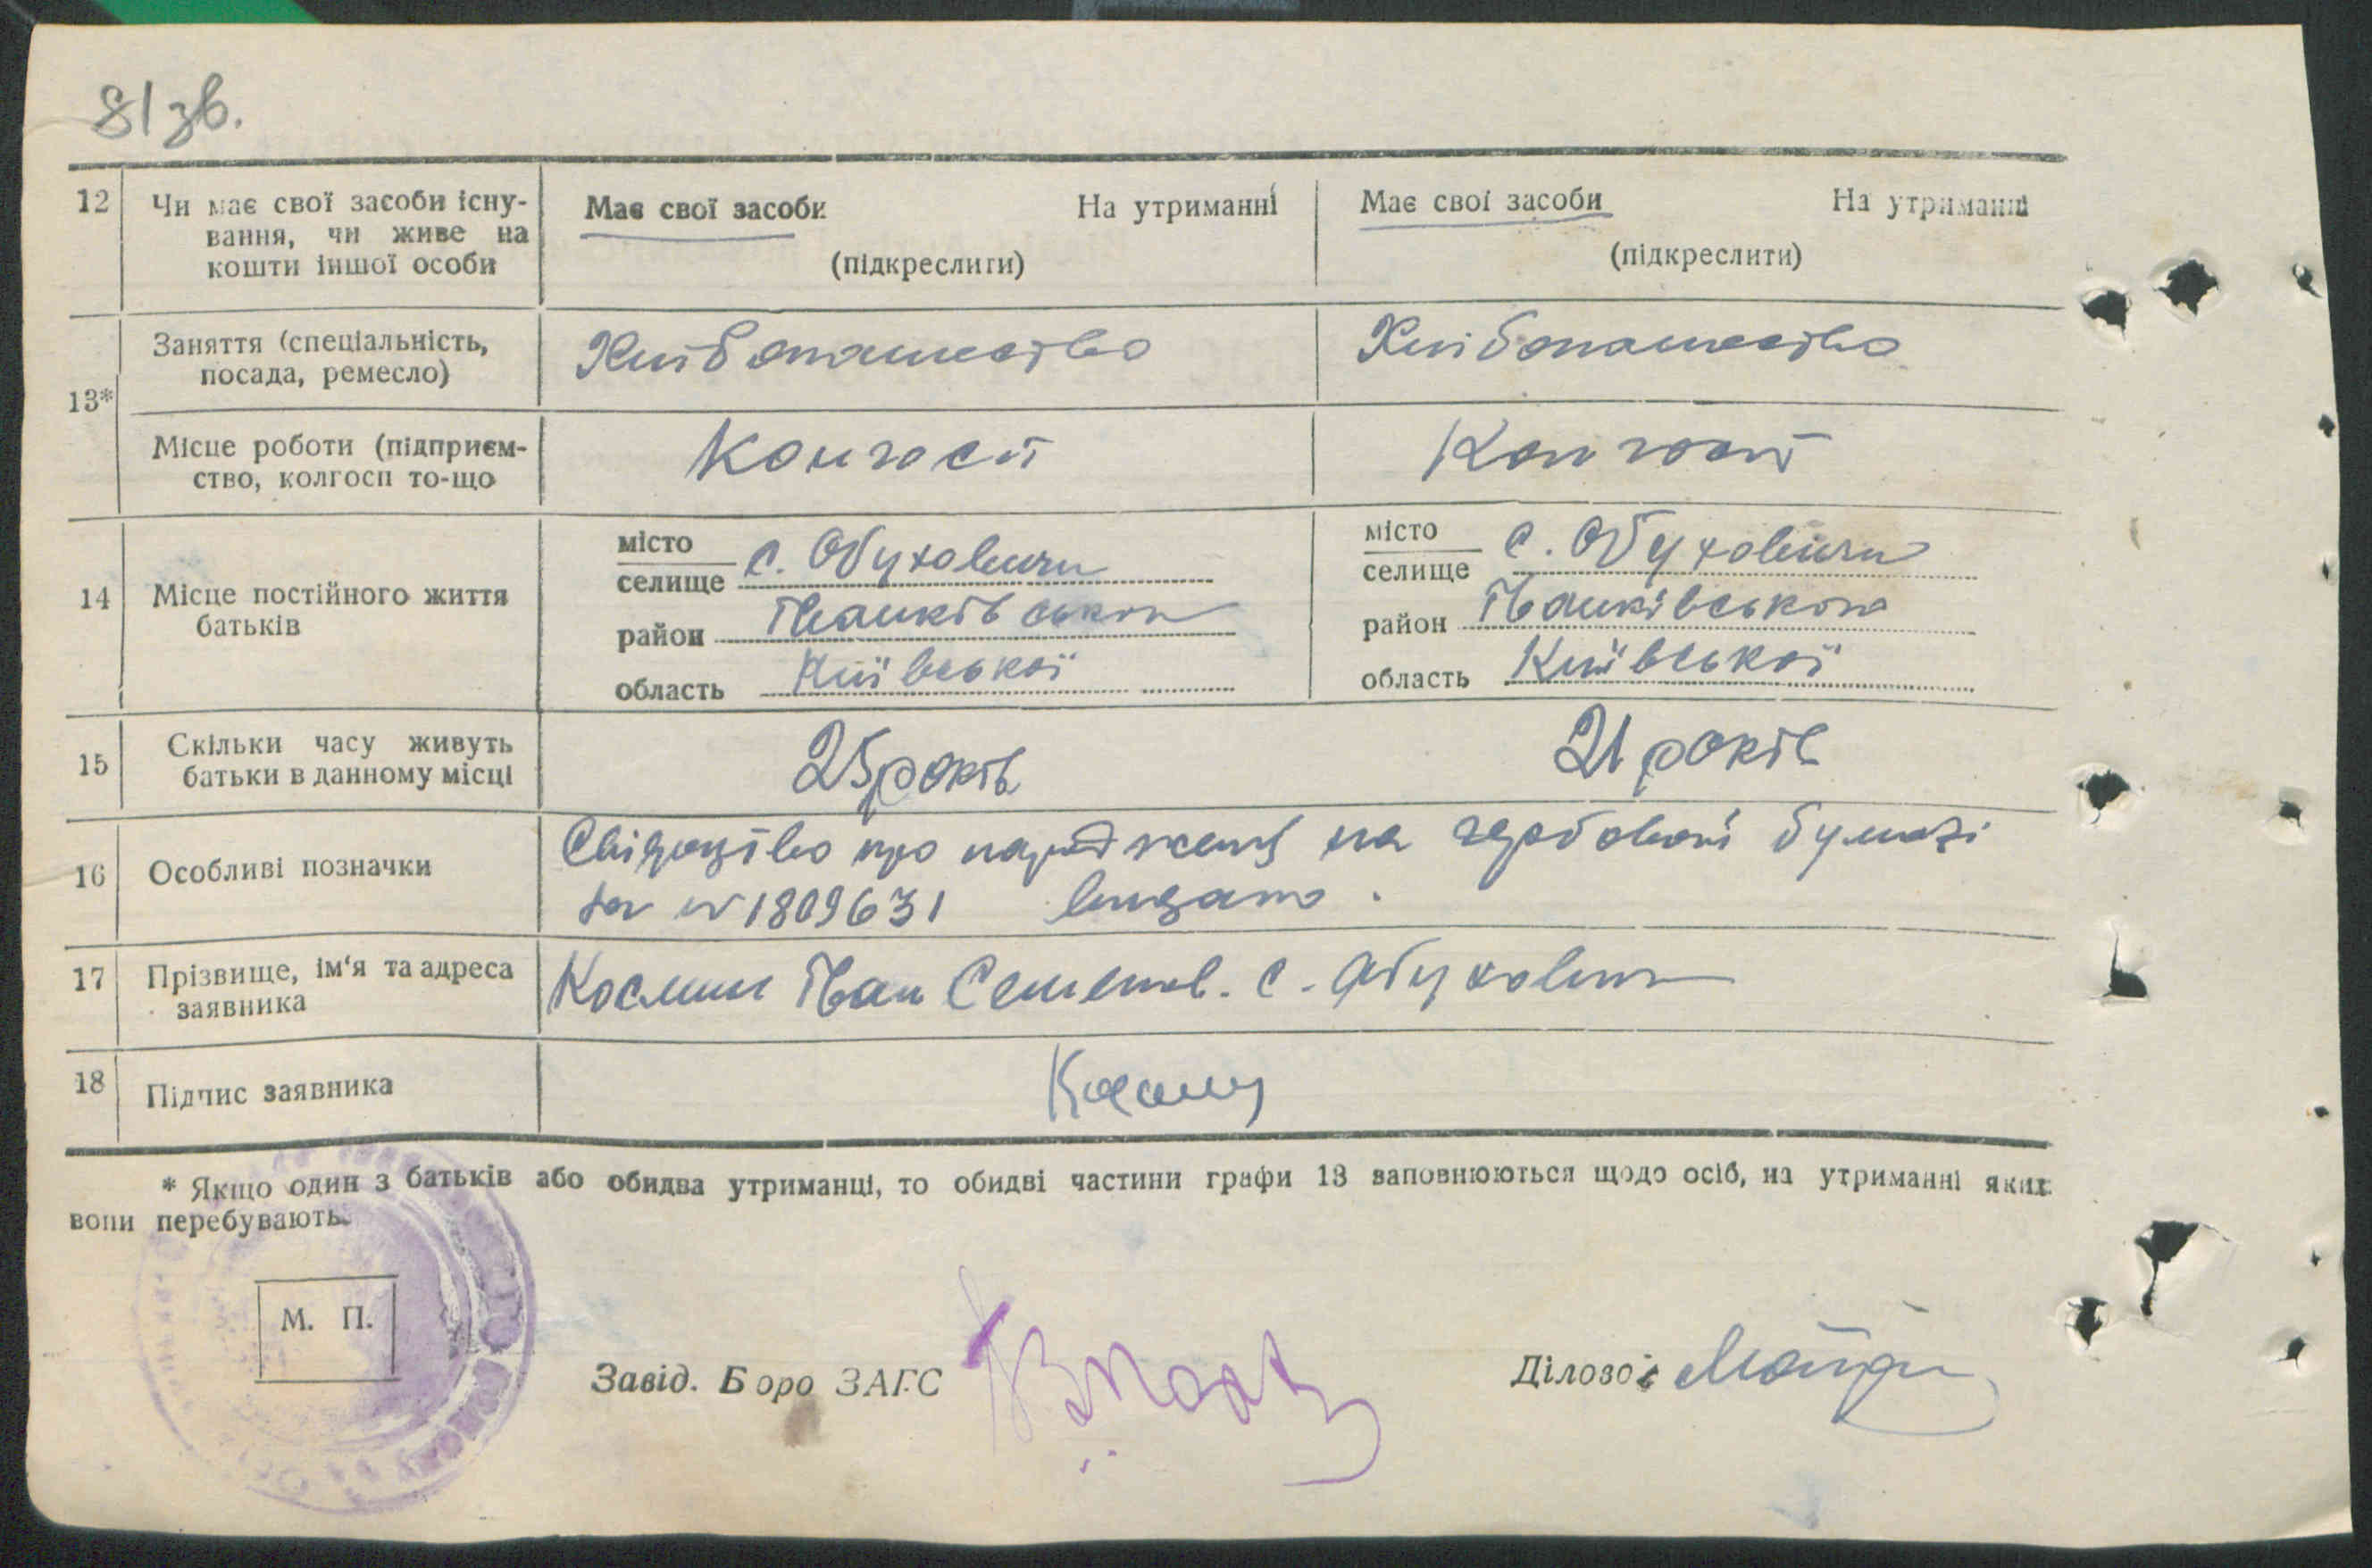 81зв.
12 Чи має свої засоби існу- Має свої засоби На утриманні Має свої засоби На утриманні
вання, чи живе на (підкреслити) (підкреслити)
кошти іншої особи
13* Заняття (спеціальність, Хліборобство Хліборобство
посада, ремесло)
Місце роботи (підприєм- Колгосп Колгосп
ство, колгосп то-що
14 Місце постійного життя батьків
місто селище с. Обуховичи місто селище с. Обуховичи
район Іванківського район Іванківського
область Київської область Київської
15 Скільки часу живуть 25 років 21 років
батьки в данному місці
16 Особливі позначки Свідоцтво про народження на гербовой бумазі
за № 1809631 видано.
17 Прізвище, ім'я та адреса Космин Іван Семенов. с. Обуховичи
заявника
18 Підпис заявника
* Якщо один з батьків або обидва утриманці, то обидві частини графи 13 заповнюються щодо осіб, на утриманні яких
вони перебувають.
М. П.
Завід. Бюро ЗАГС Діловод